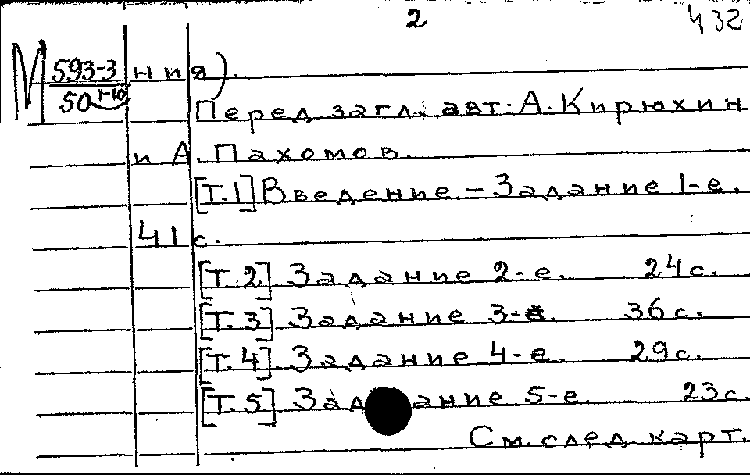 2
432
М 593-3 ния).
50 1-10
Перед загл. авт. А. Кирюхин
и А. Пахомов.
[Т.1] Введение – Задание 1-е.
41 с.
[Т.2] Задание 2-е. 24 с.
[Т.3] Задание 3-е. 36 с.
[Т.4] Задание 4-е. 29 с.
[Т.5] Задание 5-е. 23 с.
См. след. карт.